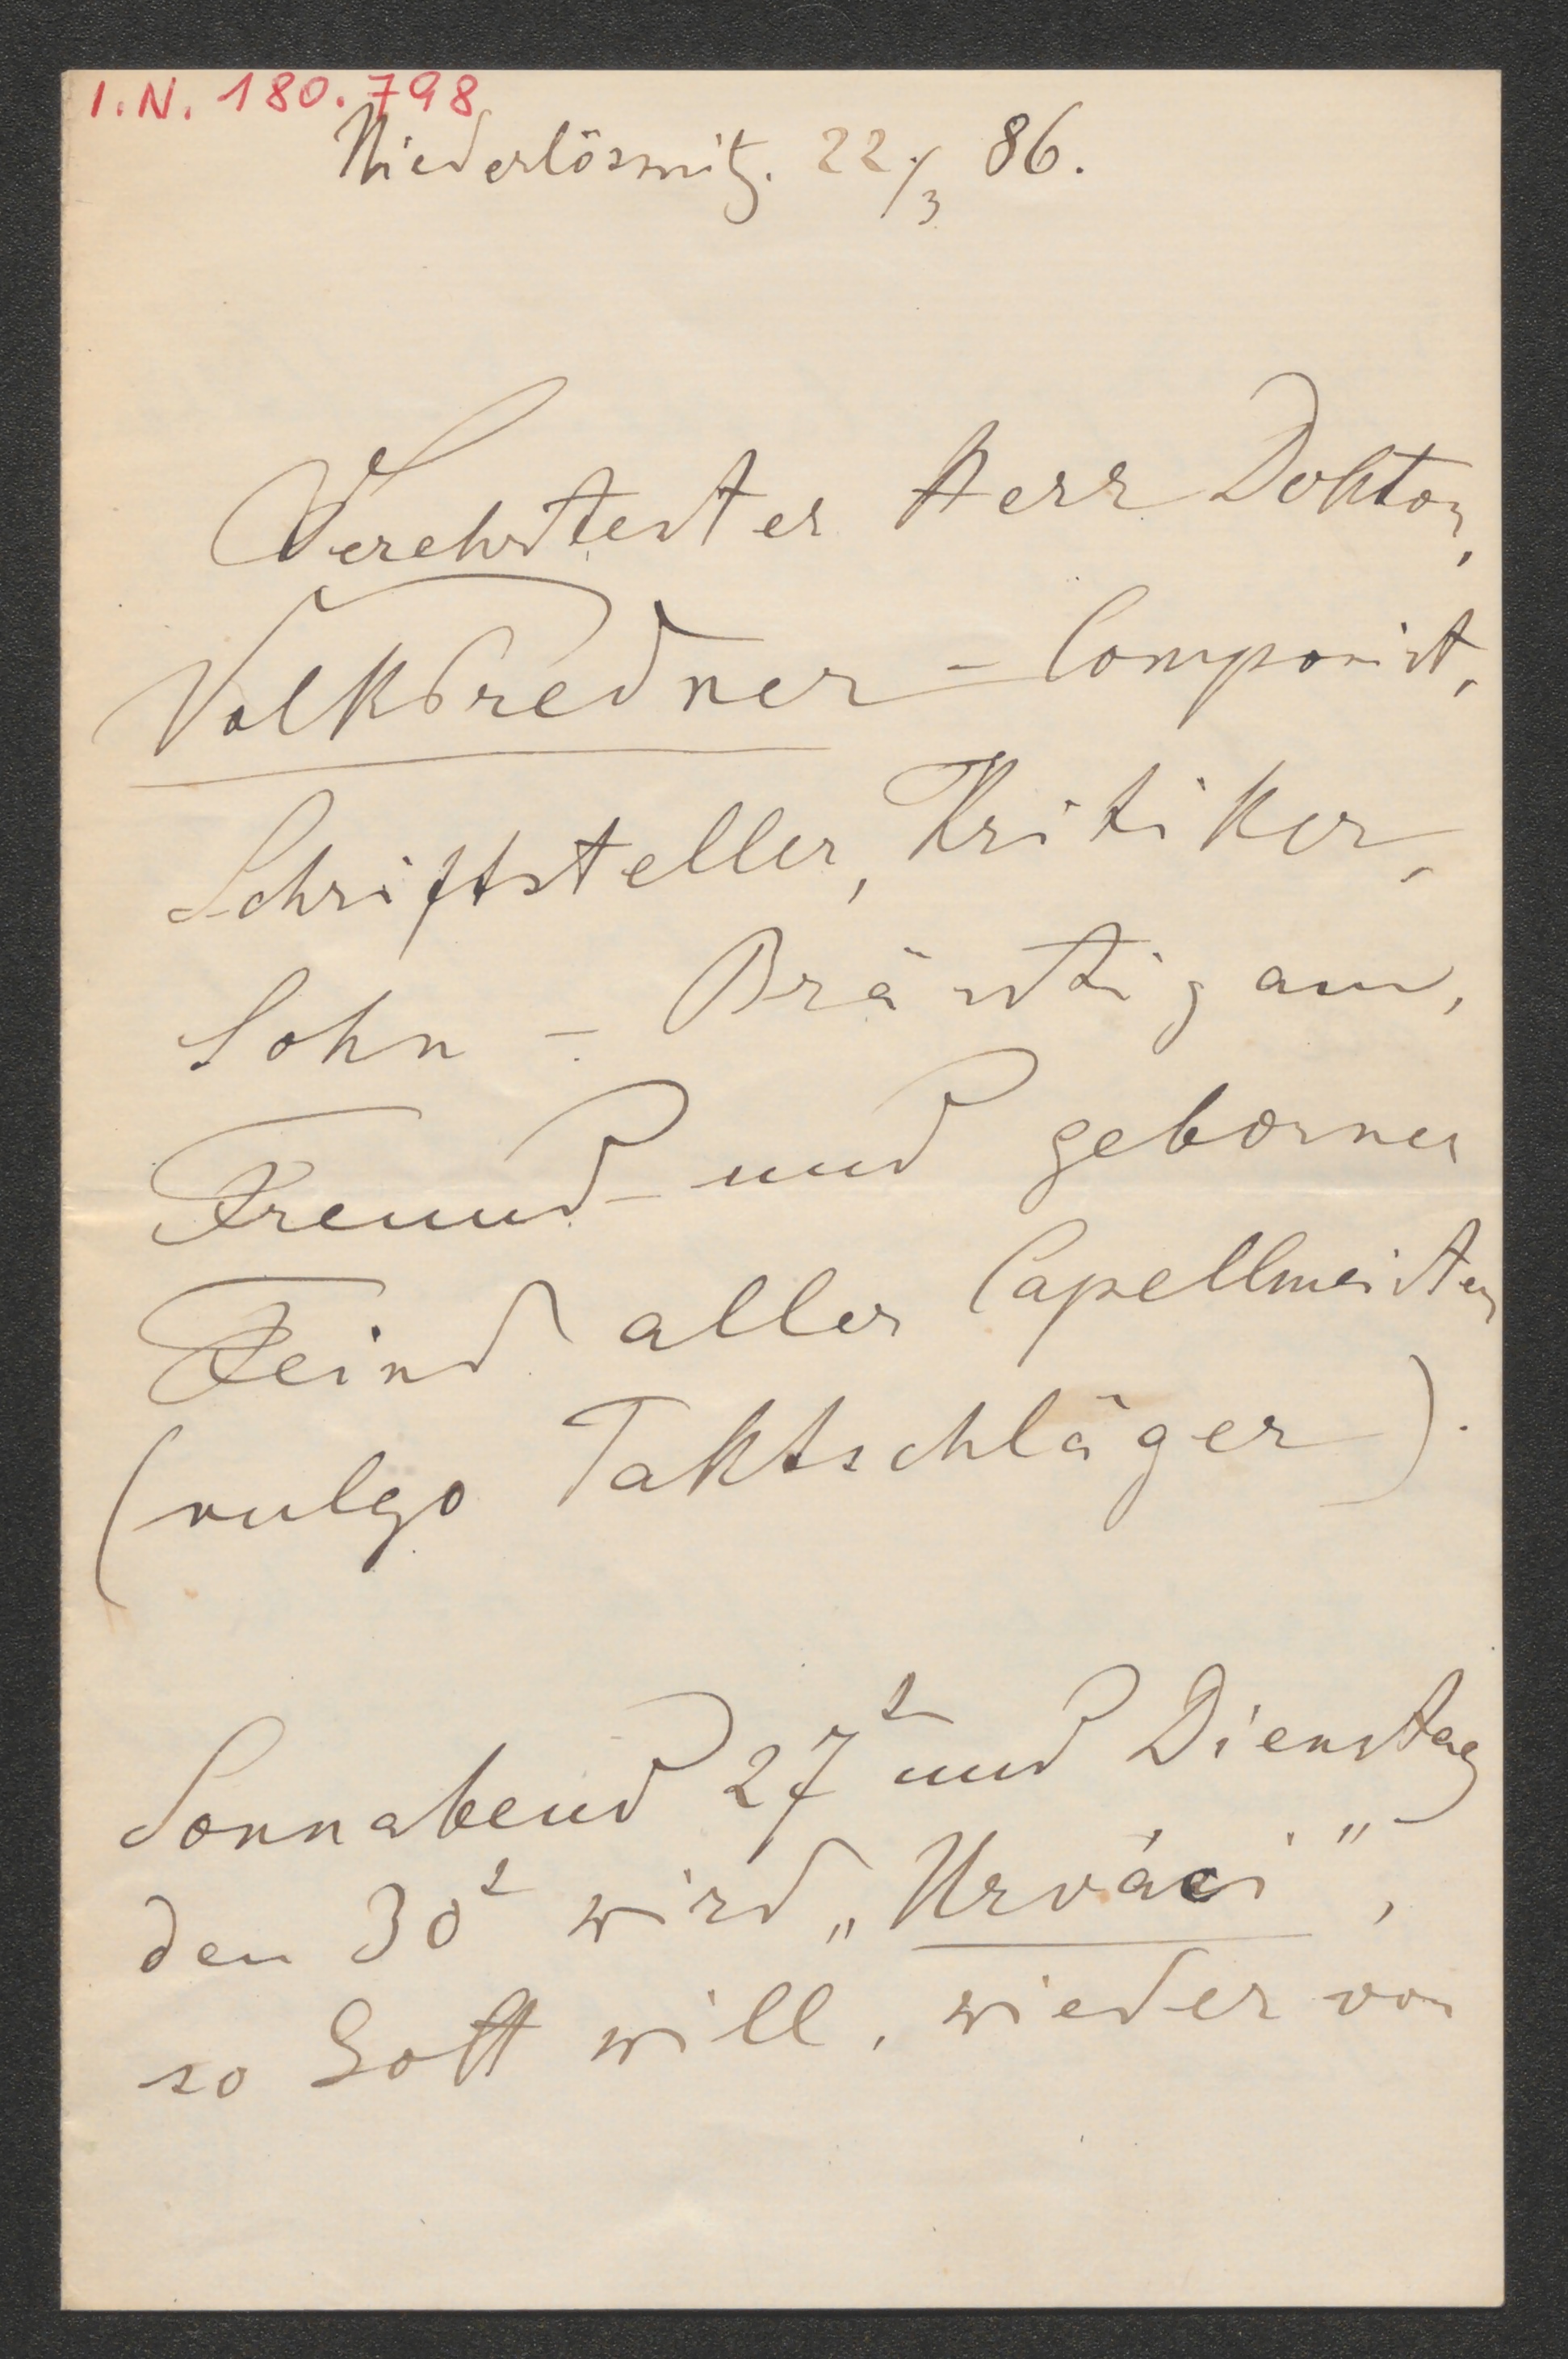 I.N. 180.798
Niederlössnitz. 22/3 86.
Verehrtester Herr Doktor,
Volksredner - Componist,
Schriftsteller, Kritiker,
Sohn - Bräutigam,
Freund - und geborner
Feind aller Capellmeister
(vulgo Taktschläger).
Sonnabend 27t und Dienstag
den 30t wird „Urváci",
so Gott will, wieder von